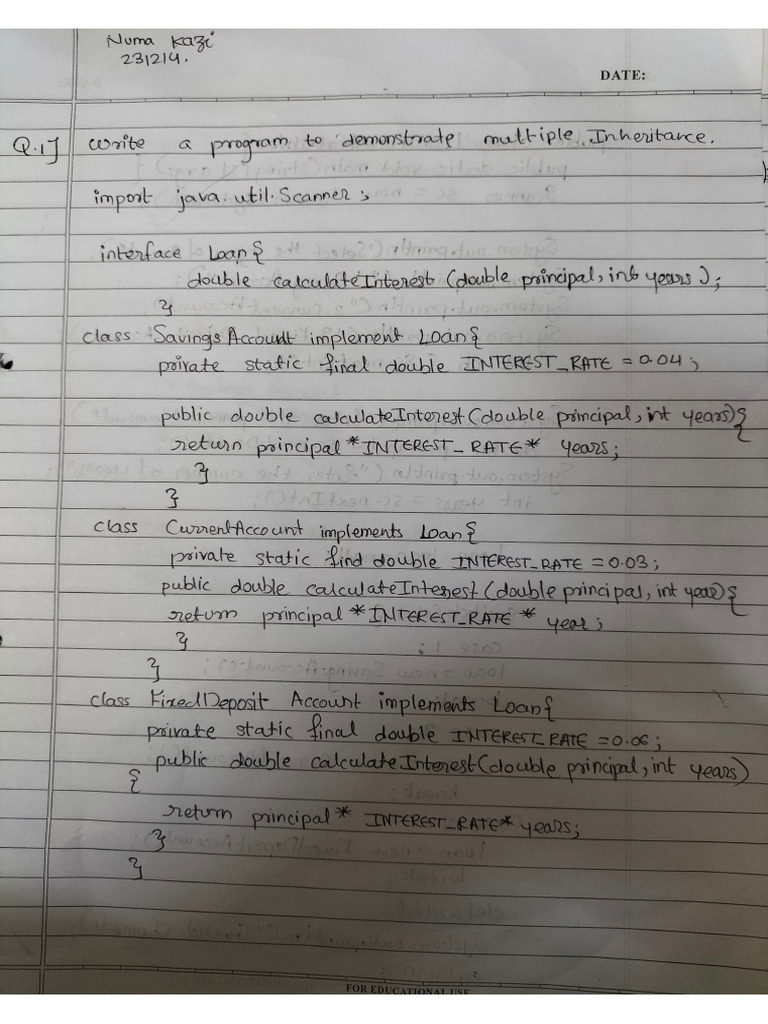 Numa Kazi
231214.
DATE:
Q.1] Write a program to demonstrate multiple Inheritance.
import java.util.Scanner;
interface Loan{
double calculateInterest (double principal, int years);
}
class SavingsAccount implement Loan{
private static final double INTEREST_RATE = 0.04;
public double calculateInterest(double principal, int years){
return principal*INTEREST_RATE* years;
}
}
class CurrentAccount implements Loan{
private static find double INTEREST_RATE = 0.03;
public double calculateInterest(double principal, int year){
return principal*INTEREST_RATE* year;
}
}
class FixedDeposit Account implements Loan{
private static final double INTEREST_RATE = 0.06;
public double calculateInterest(double principal, int years)
{
return principal* INTEREST_RATE* years;
}
}
FOR EDUCATIONAL USE